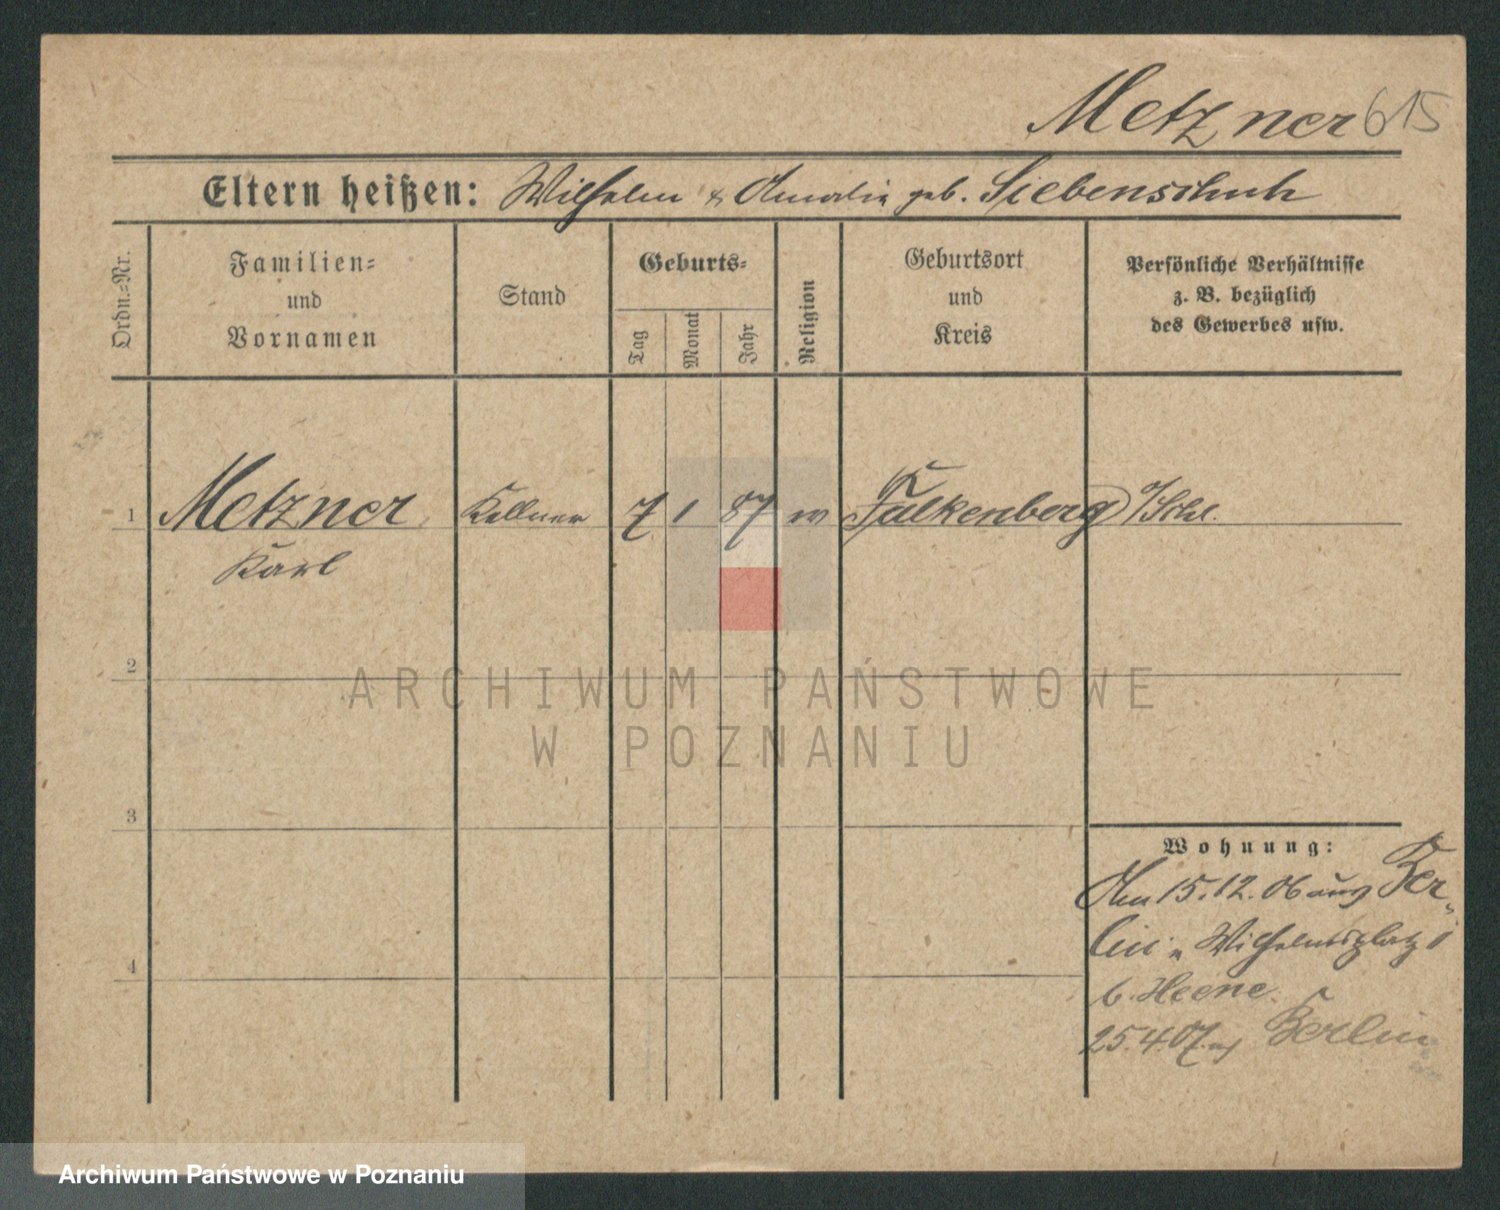 Metzner 615
Eltern heißen: Wilhelm & Amalie geb. Siebenschuh
Ordn.-Nr.
Familien-
und
Vornamen
Stand
Geburts-
Tag
Monat
Jahr
Religion
Geburtsort
und
Kreis
Persönliche Verhältnisse
z. B. bezüglich
des Gewerbes usw.
1 Metzner Kellner 7 1 87 Falkenberg O/Schl.
Karl
2
ARCHIWUM PAŃSTWOWE
W POZNANIU
3
Wohnung:
Am 15.12.06 aus Ber-
lin n. Wilhelmsplatz 1
4
b. Heene
25.4.07. n. Berlin
Archiwum Państwowe w Poznaniu